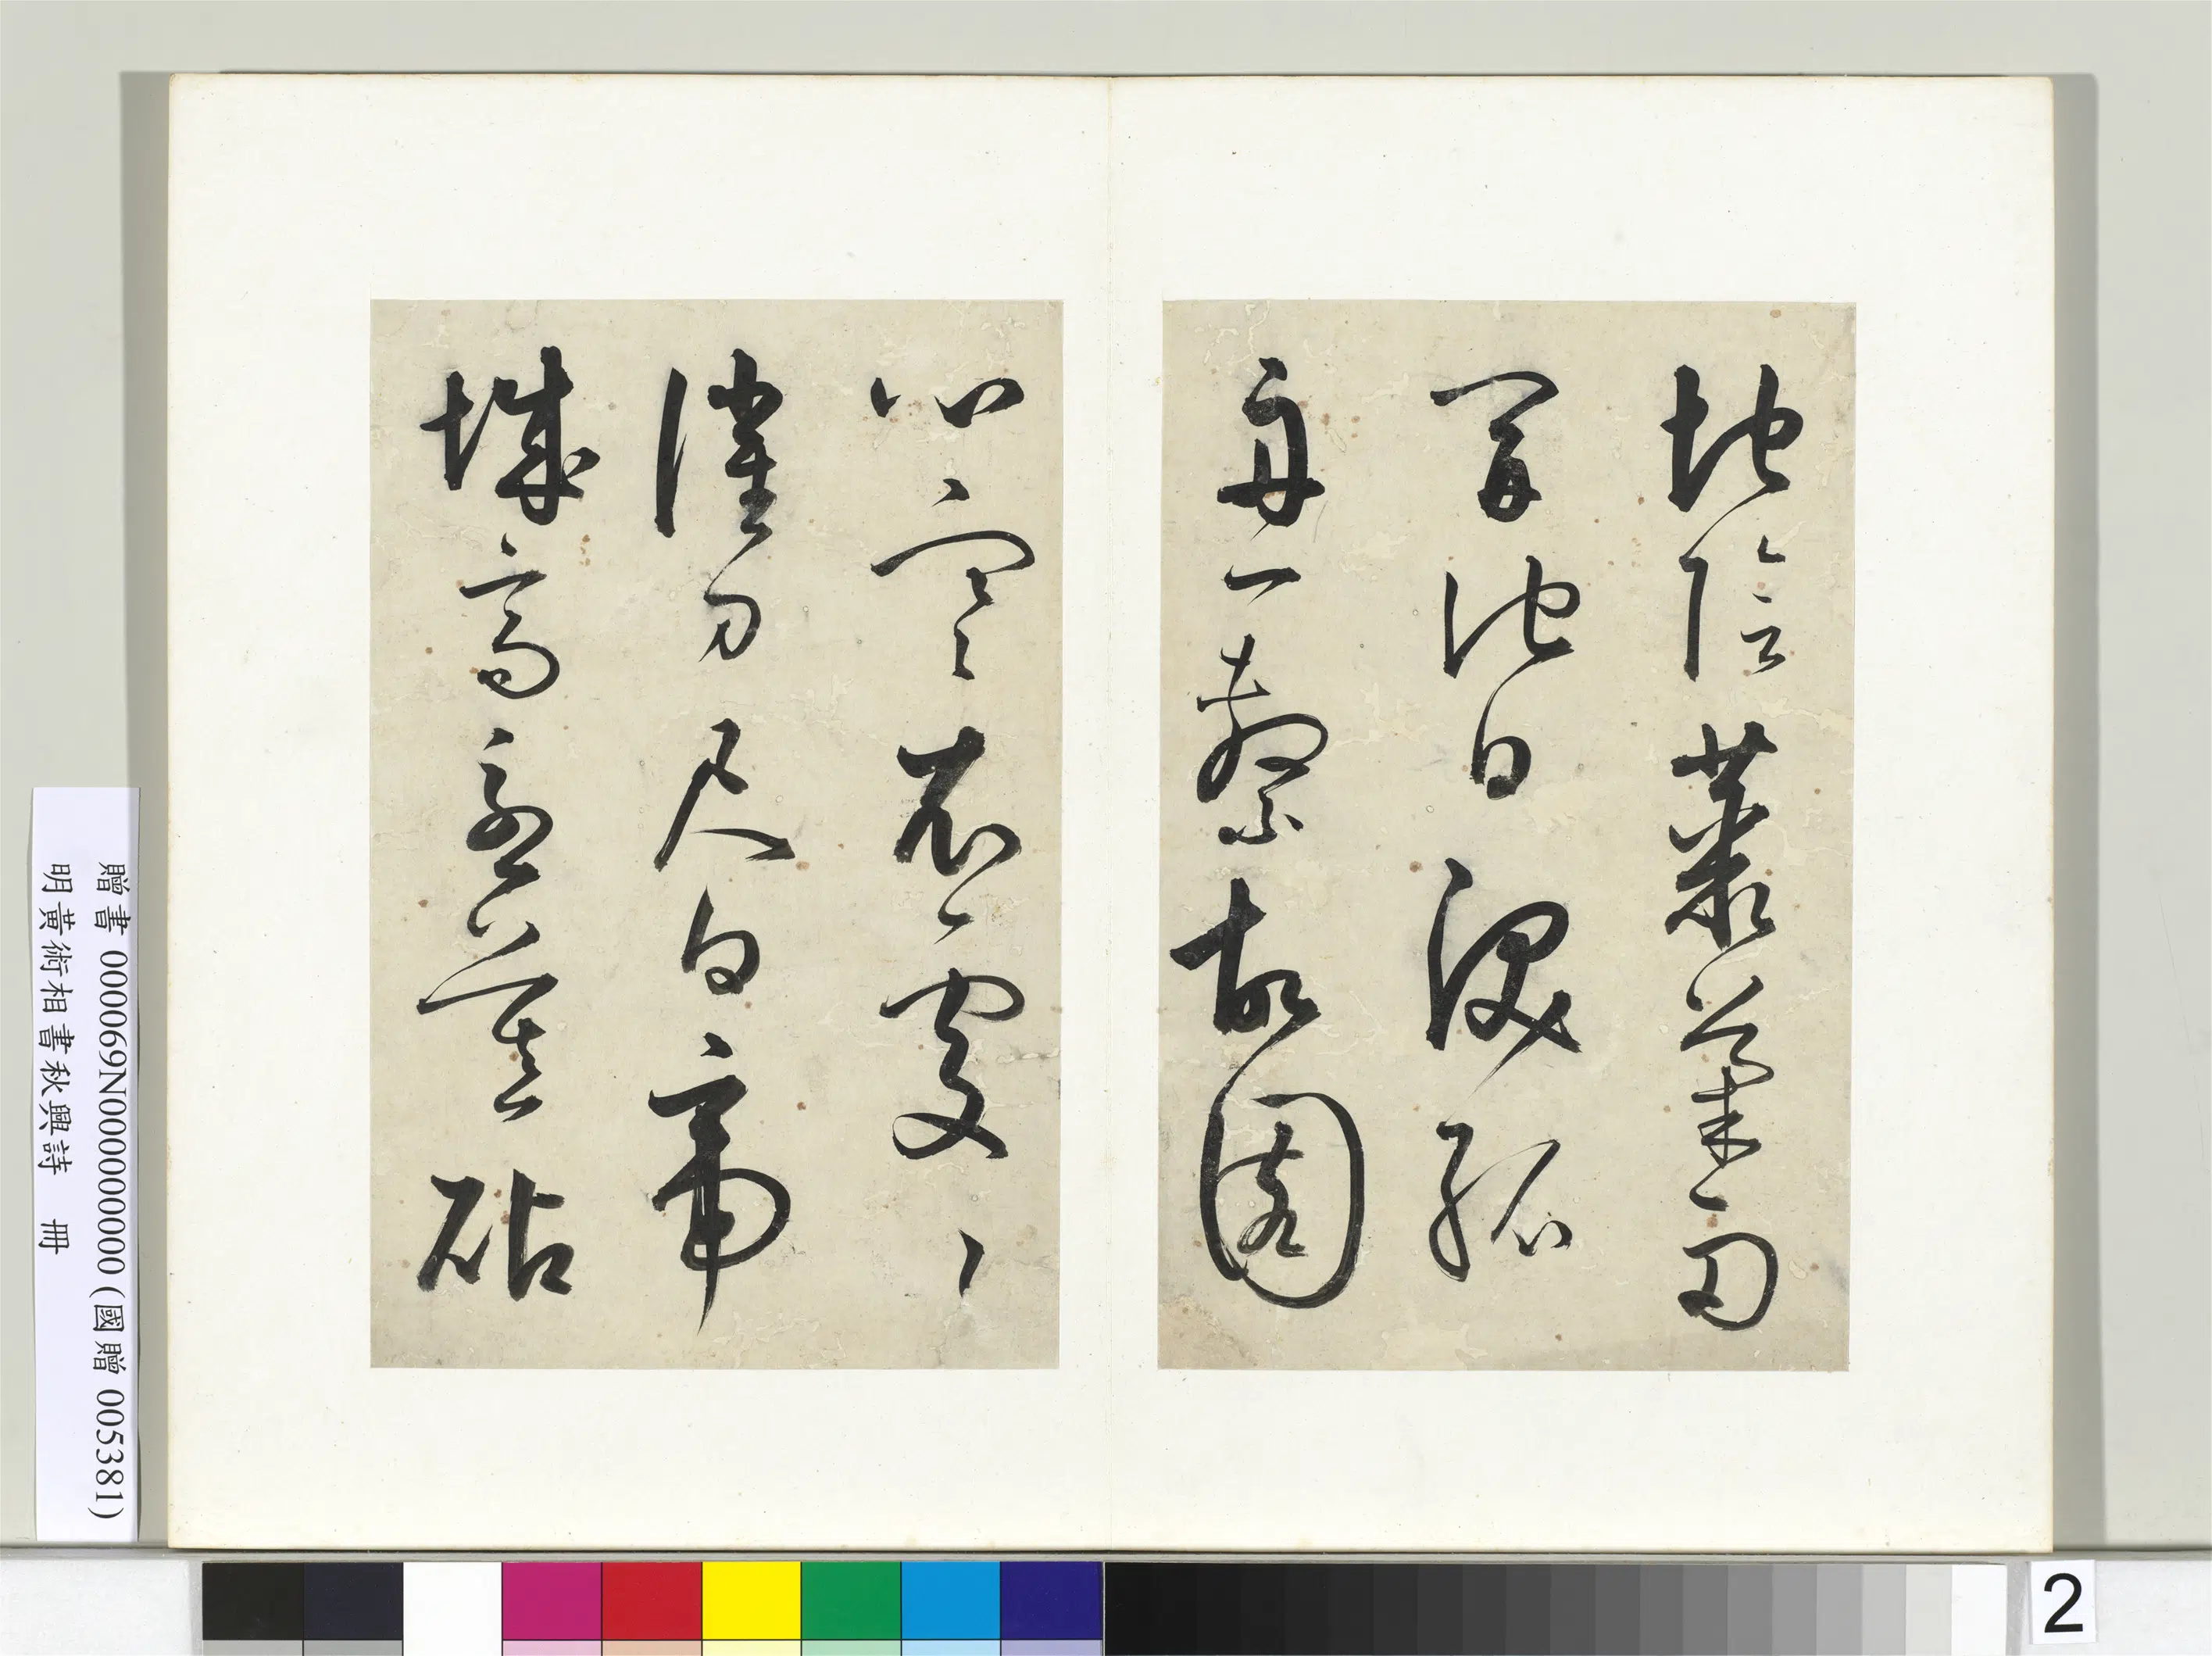 地陰叢菊兩
開他日淚孤
舟一繫故園
心寒衣處〻
催刀尺白帝
城高急暮砧
贈書 000069N000000000 (國贈 005381)
明黃術相書秋興詩 冊
2